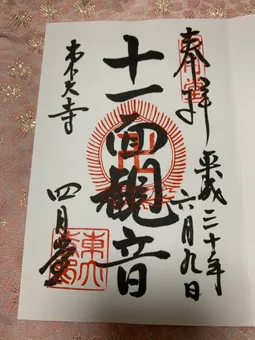 奉拝
平成三十年
六月九日
十一面観音
東大寺
四月堂